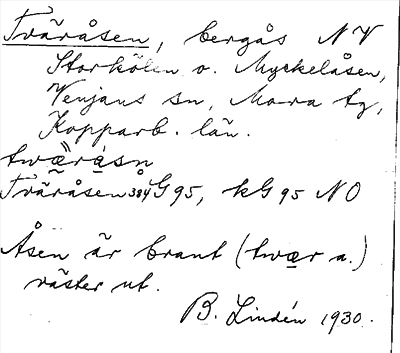 Tväråsen, bergås NV
Storkölen o. Myckelåsen,
Venjans sn, Mora tg,
Kopparb. län.
twä̀rå̀sn
Tväråsen 384 G 95, kG 95 NO
Åsen är brant (twær a.)
väster ut.
B. Lindén 1930.